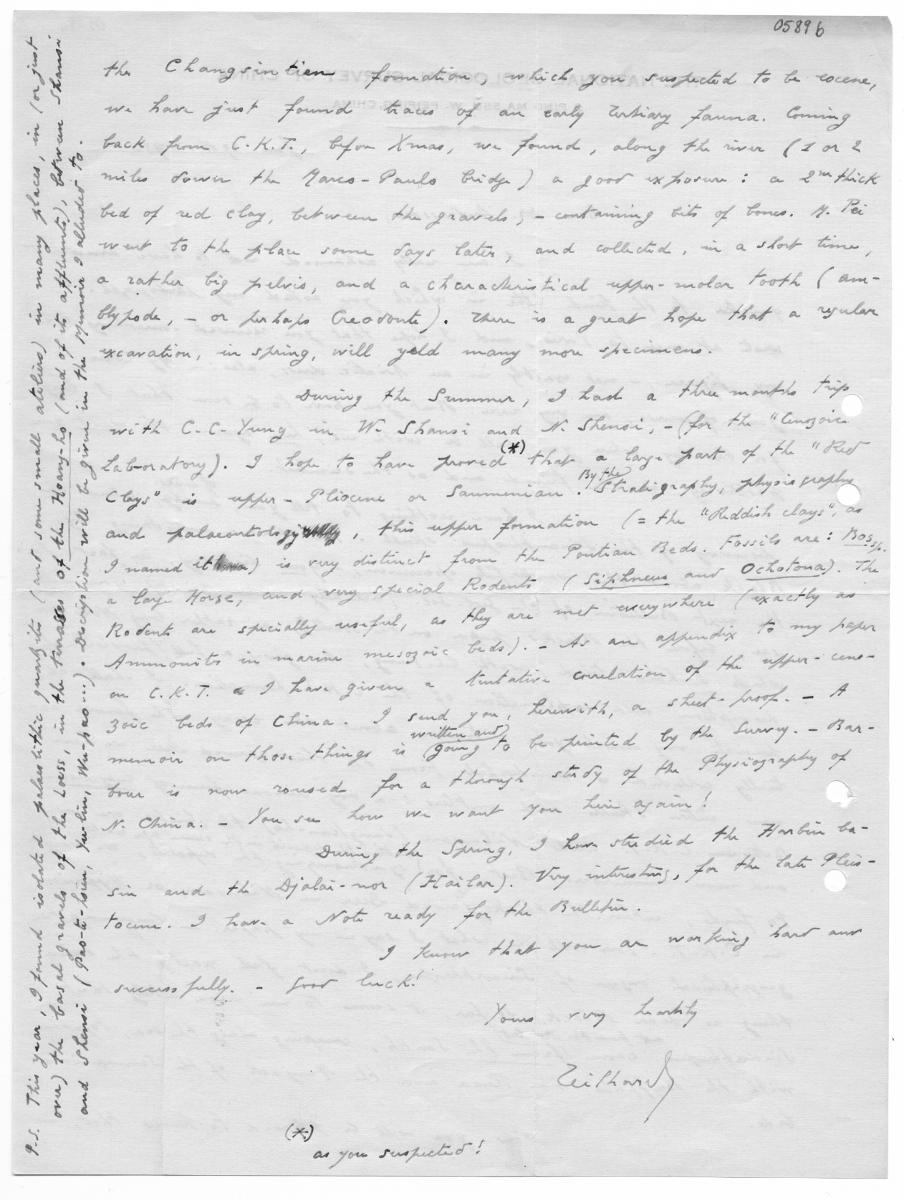 05896
the Changsintien formation, which you suspected to be eocene,
we have just found traces of an early Tertiary fauna. Coming
back from C.K.T., before Xmas, we found, along the river (1 or 2
miles down the Marco-Paulo bridge) a good exposure: a 2m thick
bed of red clay, between the gravels, - containing bits of bones. M. Pei
went to the place some days later, and collected, in a short time,
a rather big pelvis, and a characteristical upper-molar tooth (am-
blypode, - or perhaps Creodonte). There is a great hope that a regular
excavation, in spring, will yeld many more specimens.
During the Summer, I had a three months trip
with C.C. Yung in W. Shansi and N. Shensi, - (for the "Cenozoic
Laboratory). I hope to have proved (*) that a large part of the "Red
Clays" is upper-Pliocene or Sanmenian. By the Stratigraphy, physiography
and palaeontology, this upper formation (= the "Reddish clays", as
I named it) is very distinct from the Pontian Beds. Fossils are: Bos sp.
a large Horse, and very special Rodents (Siphneus and Ochotona). The
Rodents are specially useful, as they are met everywhere (exactly as
Ammonits in marine mesozoic beds). - As an appendix to my paper
on C.K.T. I have given a tentative correlation of the upper-ceno-
zoic beds of China. I send you, herewith, a sheet-proof. - A
memoir on those things is written and going to be printed by the Survey. - Bar-
bour is now roused for a through study of the Physiography of
N. China. - You see how we want you here again!
During the Spring, I have studied the Harbin ba-
sin and the Djalai-nor (Hailar). Very interesting, for the late Pleis-
tocene. I have a Note ready for the Bulletin.
I know that you are working hard and
successfully. - Good luck!
Yours very heartily
Teilhard
(*)
as you suspected!
P.S. This year, I found isolated palaeolithic quartzits (and some small ateliers) in many places, in (or just
over) the basal gravels of the Loess, in the terrases of the Hoang-ho (and of its affluents), between Shansi
and Shensi (Pao-te-hsien, Yu-lin, Wu-pao...). Description will be given in the Memoir I alluded to.